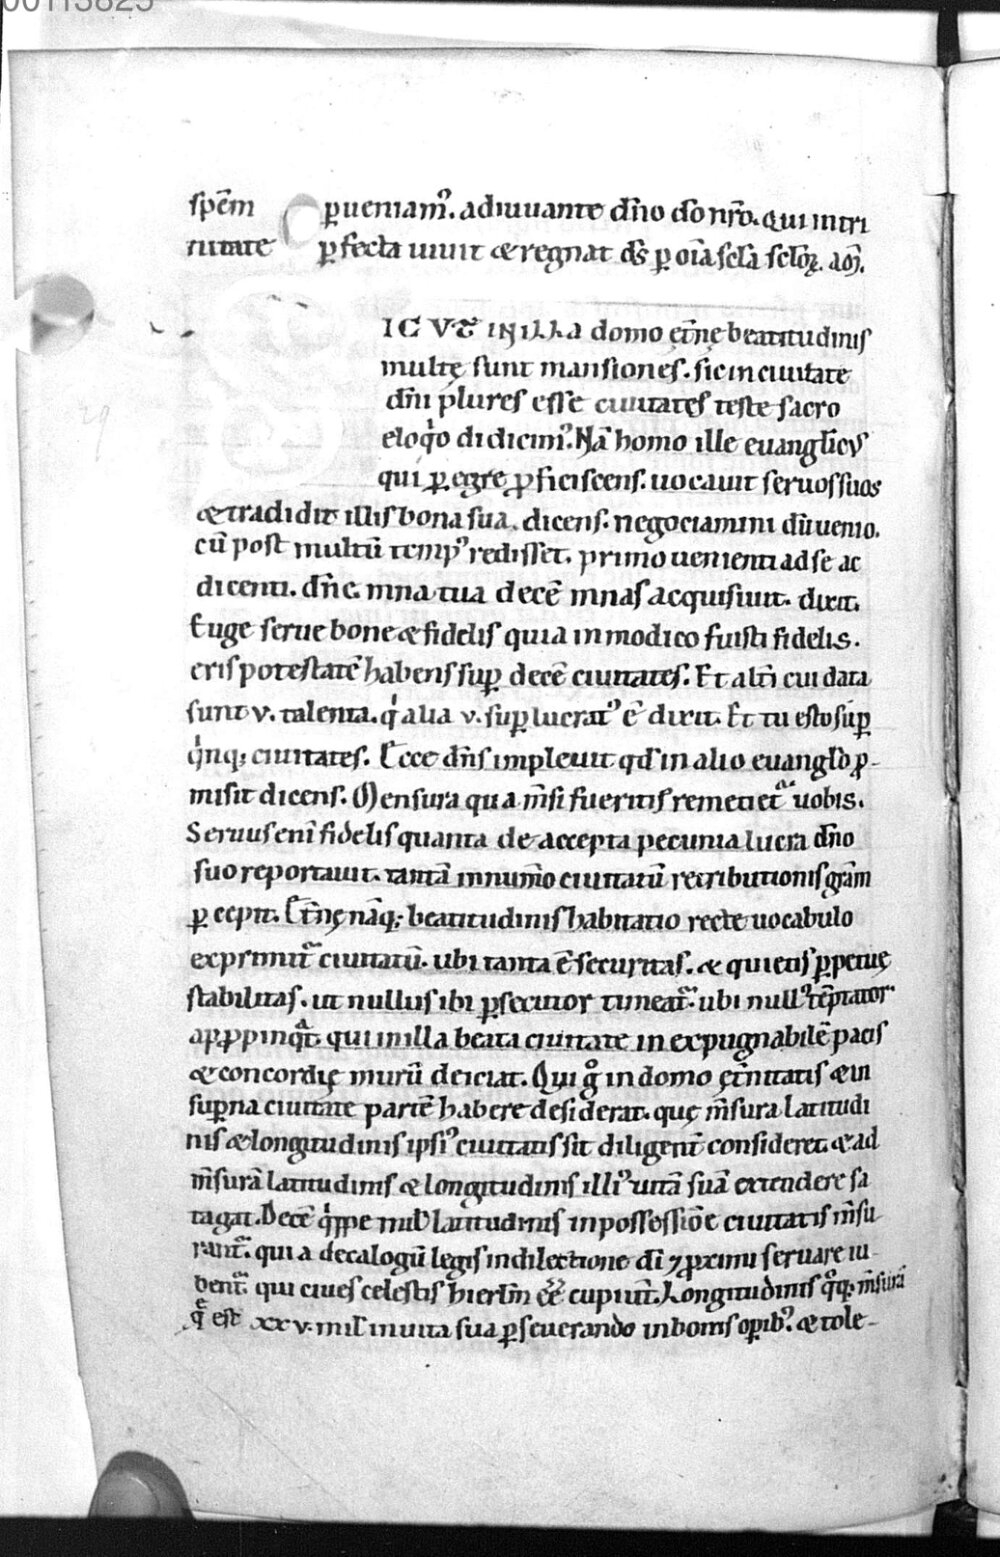 00113825
spēm ꝑueniam᷒. adiuuante dn̄o do nr̄o. qui intri
nitate ꝑfecta uiuit & regnat ds̄ ꝑ oīa sc̄la sc̄loꝝ. am̄.
IC VT IN ILLA domo ęt̄nę beatitudinis
multę sunt mansiones. sic in ciuitate
dn̄i plures esse ciuitates teste sacro
eloqͥo didicim᷒. Nā homo ille euangl̄icus
qui ꝑegre ꝓficiscens. uocauit seruos suos
& tradidit illis bona sua. dicens. negociamini dū uenio.
cū post multū temp᷒ redisset. primo uenienti ad se ac
dicenti. dn̄e. mna tua decē mnas acquisiuit. dixit.
Euge serue bone & fidelis quia in modico fuisti fidelis.
eris potestatē habens suꝑ decē ciuitates. Et alt̄i cui data
sunt v. talenta. qͥ alia v. suꝑlucrat᷒ ē dixit. Et tu esto suꝑ
qͥnq; ciuitates. Ecce dn̄s impleuit qd̄ in alio euanglō ꝓ-
misit dicens. Mensura qua m̄si fueritis remetiet᷑ uobis.
Seruus enī fidelis quanta de accepta pecunia lucra dn̄o
suo reportauit. tantā in num̄o ciuitatū retributionis gr̄am
ꝑcepit. Et̄nę nāq; beatitudinis habitatio recte uocabulo
exprimit᷑ ciuitatū. ubi tanta ē securitas. & quietis ꝑpetuę
stabilitas. ut nullus ibi ꝑsecutor timeat᷑. ubi null᷒ tēptator
apꝓpinqͣt. qui in illa beata ciuitate inexpugnabilē pacis
& concordię murū deiciat. Qui gͦ in domo ęt̄nitatis & in
suꝑna ciuitate partē habere desiderat. quę m̄sura latitudi
nis & longitudinis ipsi᷒ ciuitatis sit diligent̄ consideret. & ad
m̄surā latitudinis & longitudinis illi᷒ uitā suā extendere sa
tagat. Decē qͥppe mil̄ latitudinis in possessiōe ciuitatis m̄su-
rant᷑. qui a decalogū legis in dilectione dī ⁊ ꝓximi seruare iu-
bent᷑. qui ciues celestis hierlm̄ eē̄ cupiūt. Longitudinis qͦq; m̄surā
q̄ est xxv. mil̄ in uita sua ꝑseuerando in bonis oꝑib᷒. & tole-